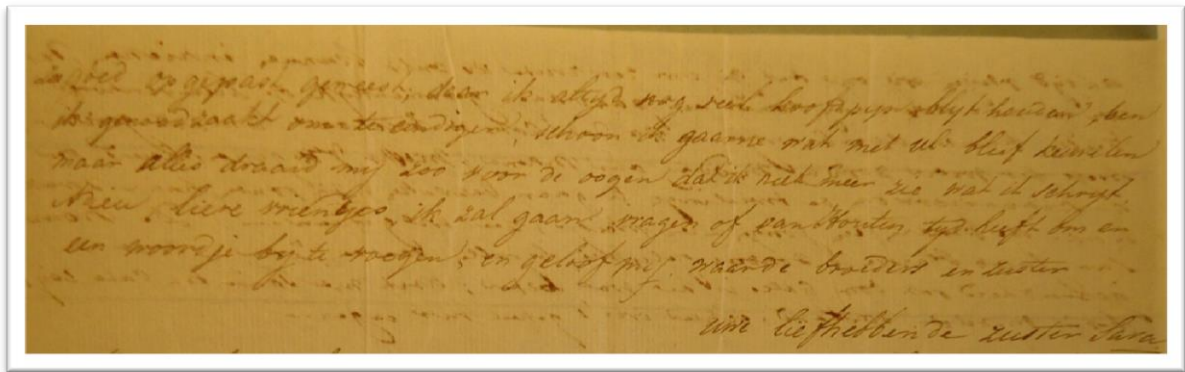 goed opgepast geweest, daar ik altyd nog veel hoofdpyn blyf houden, ben
ik genoodzaakt om te eindigen, schoon ik gaarne wat met ul. bleef keuvelen
maar alles draaid mij zoo voor de oogen dat ik niet meer zie wat ik schryf.
Adieu, lieve vrientjes, ik zal gaan vragen of van Houten tyd heeft om er
een woordje by te voegen, en geloof mij waarde broeders en zuster
uwe liefhebbende zuster Sara